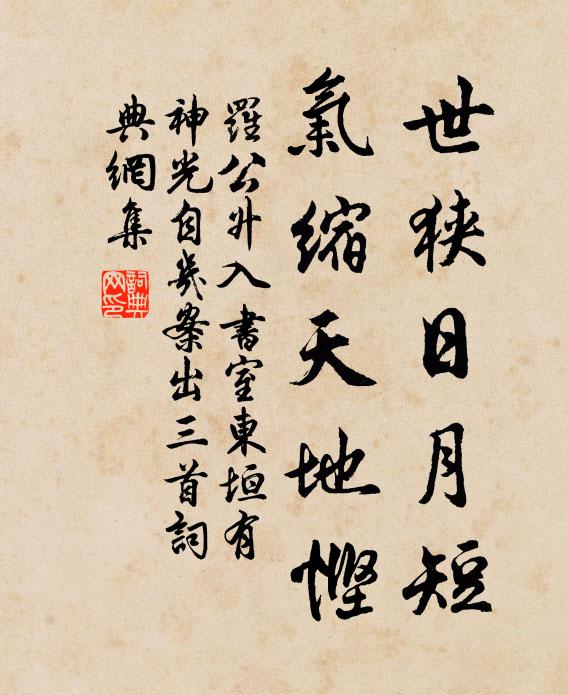 世狹日月短
氣縮天地慳
羅公外入書室東垣有
神光自幾案出三首詞
典網集
詞典网印